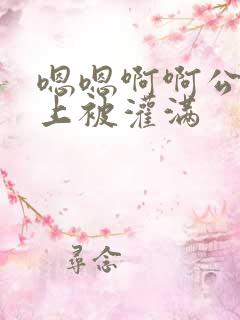 嗯嗯啊啊公
上被灌满
尋念